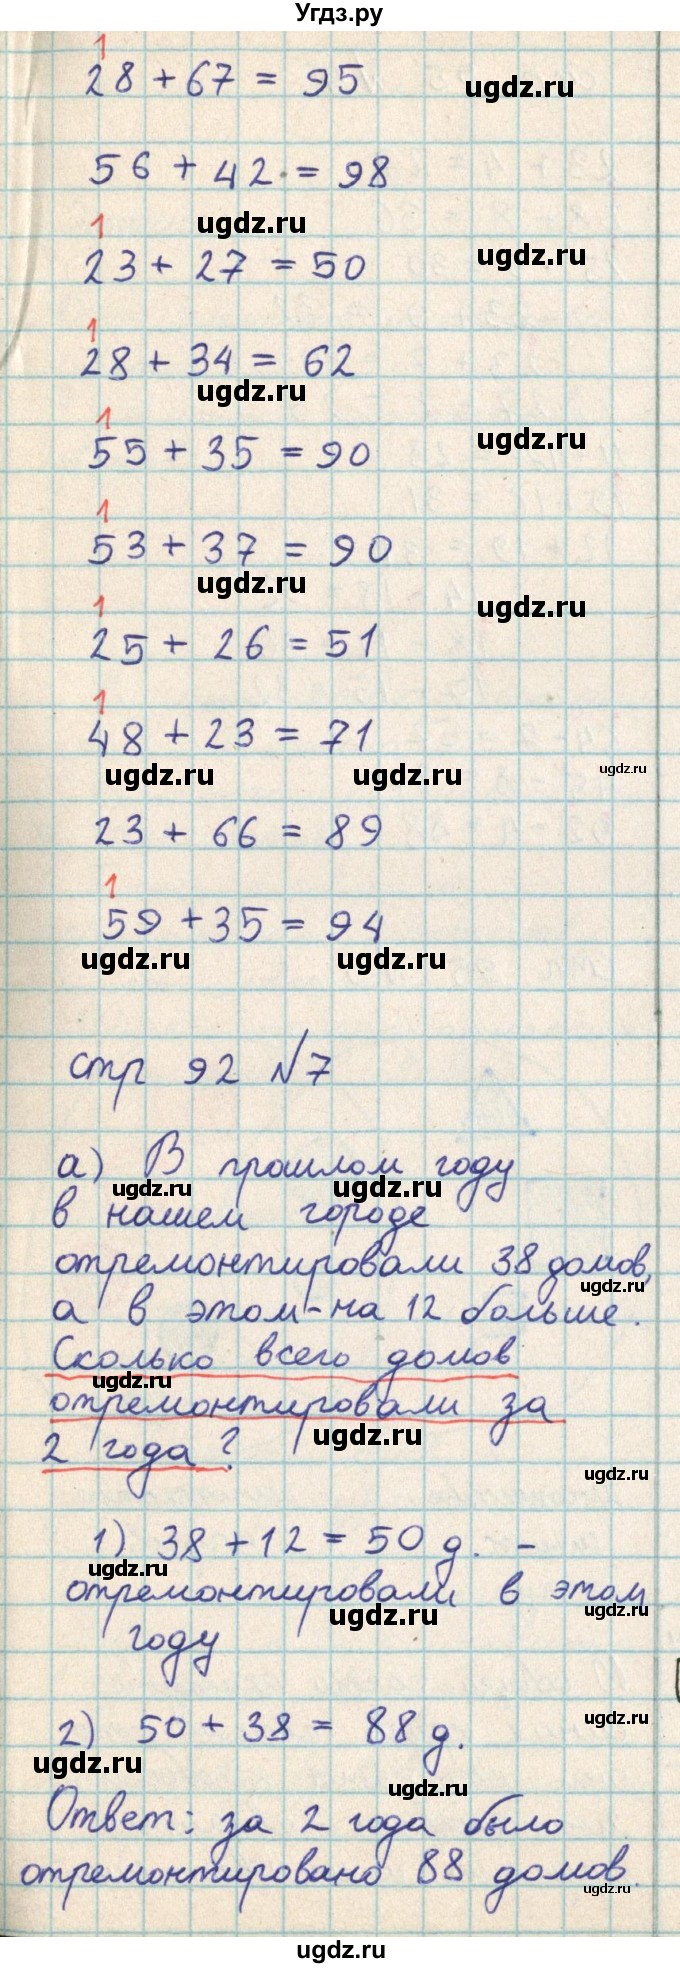 Угдз.ру
1
28 + 67 = 95
ugdz.ru
56 + 42 = 98
ugdz.ru
1
ugdz.ru
23 + 27 = 50
1
28 + 34 = 62
ugdz.ru
1
ugdz.ru
55 + 35 = 90
1
53 + 37 = 90
ugdz.ru
1
ugdz.ru
25 + 26 = 51
1
48 + 23 = 71
ugdz.ru ugdz.ru ugdz.ru
23 + 66 = 89
1
59 + 35 = 94
ugdz.ru ugdz.ru
стр 92 №7
а) В прошлом году
ugdz.ru ugdz.ru
в нашем городе
отремонтировали 38 домов,
ugdz.ru
а в этом - на 12 больше.
Сколько всего домов
ugdz.ru
отремонтировали за
ugdz.ru
2 года?
ugdz.ru
1) 38 + 12 = 50 д. -
ugdz.ru ugdz.ru
отремонтировали в этом
ugdz.ru ugdz.ru
году
ugdz.ru
2) 50 + 38 = 88 д.
ugdz.ru
ugdz.ru
Ответ: за 2 года было
отремонтировано 88 домов.
ugdz.ru
ugdz.ru